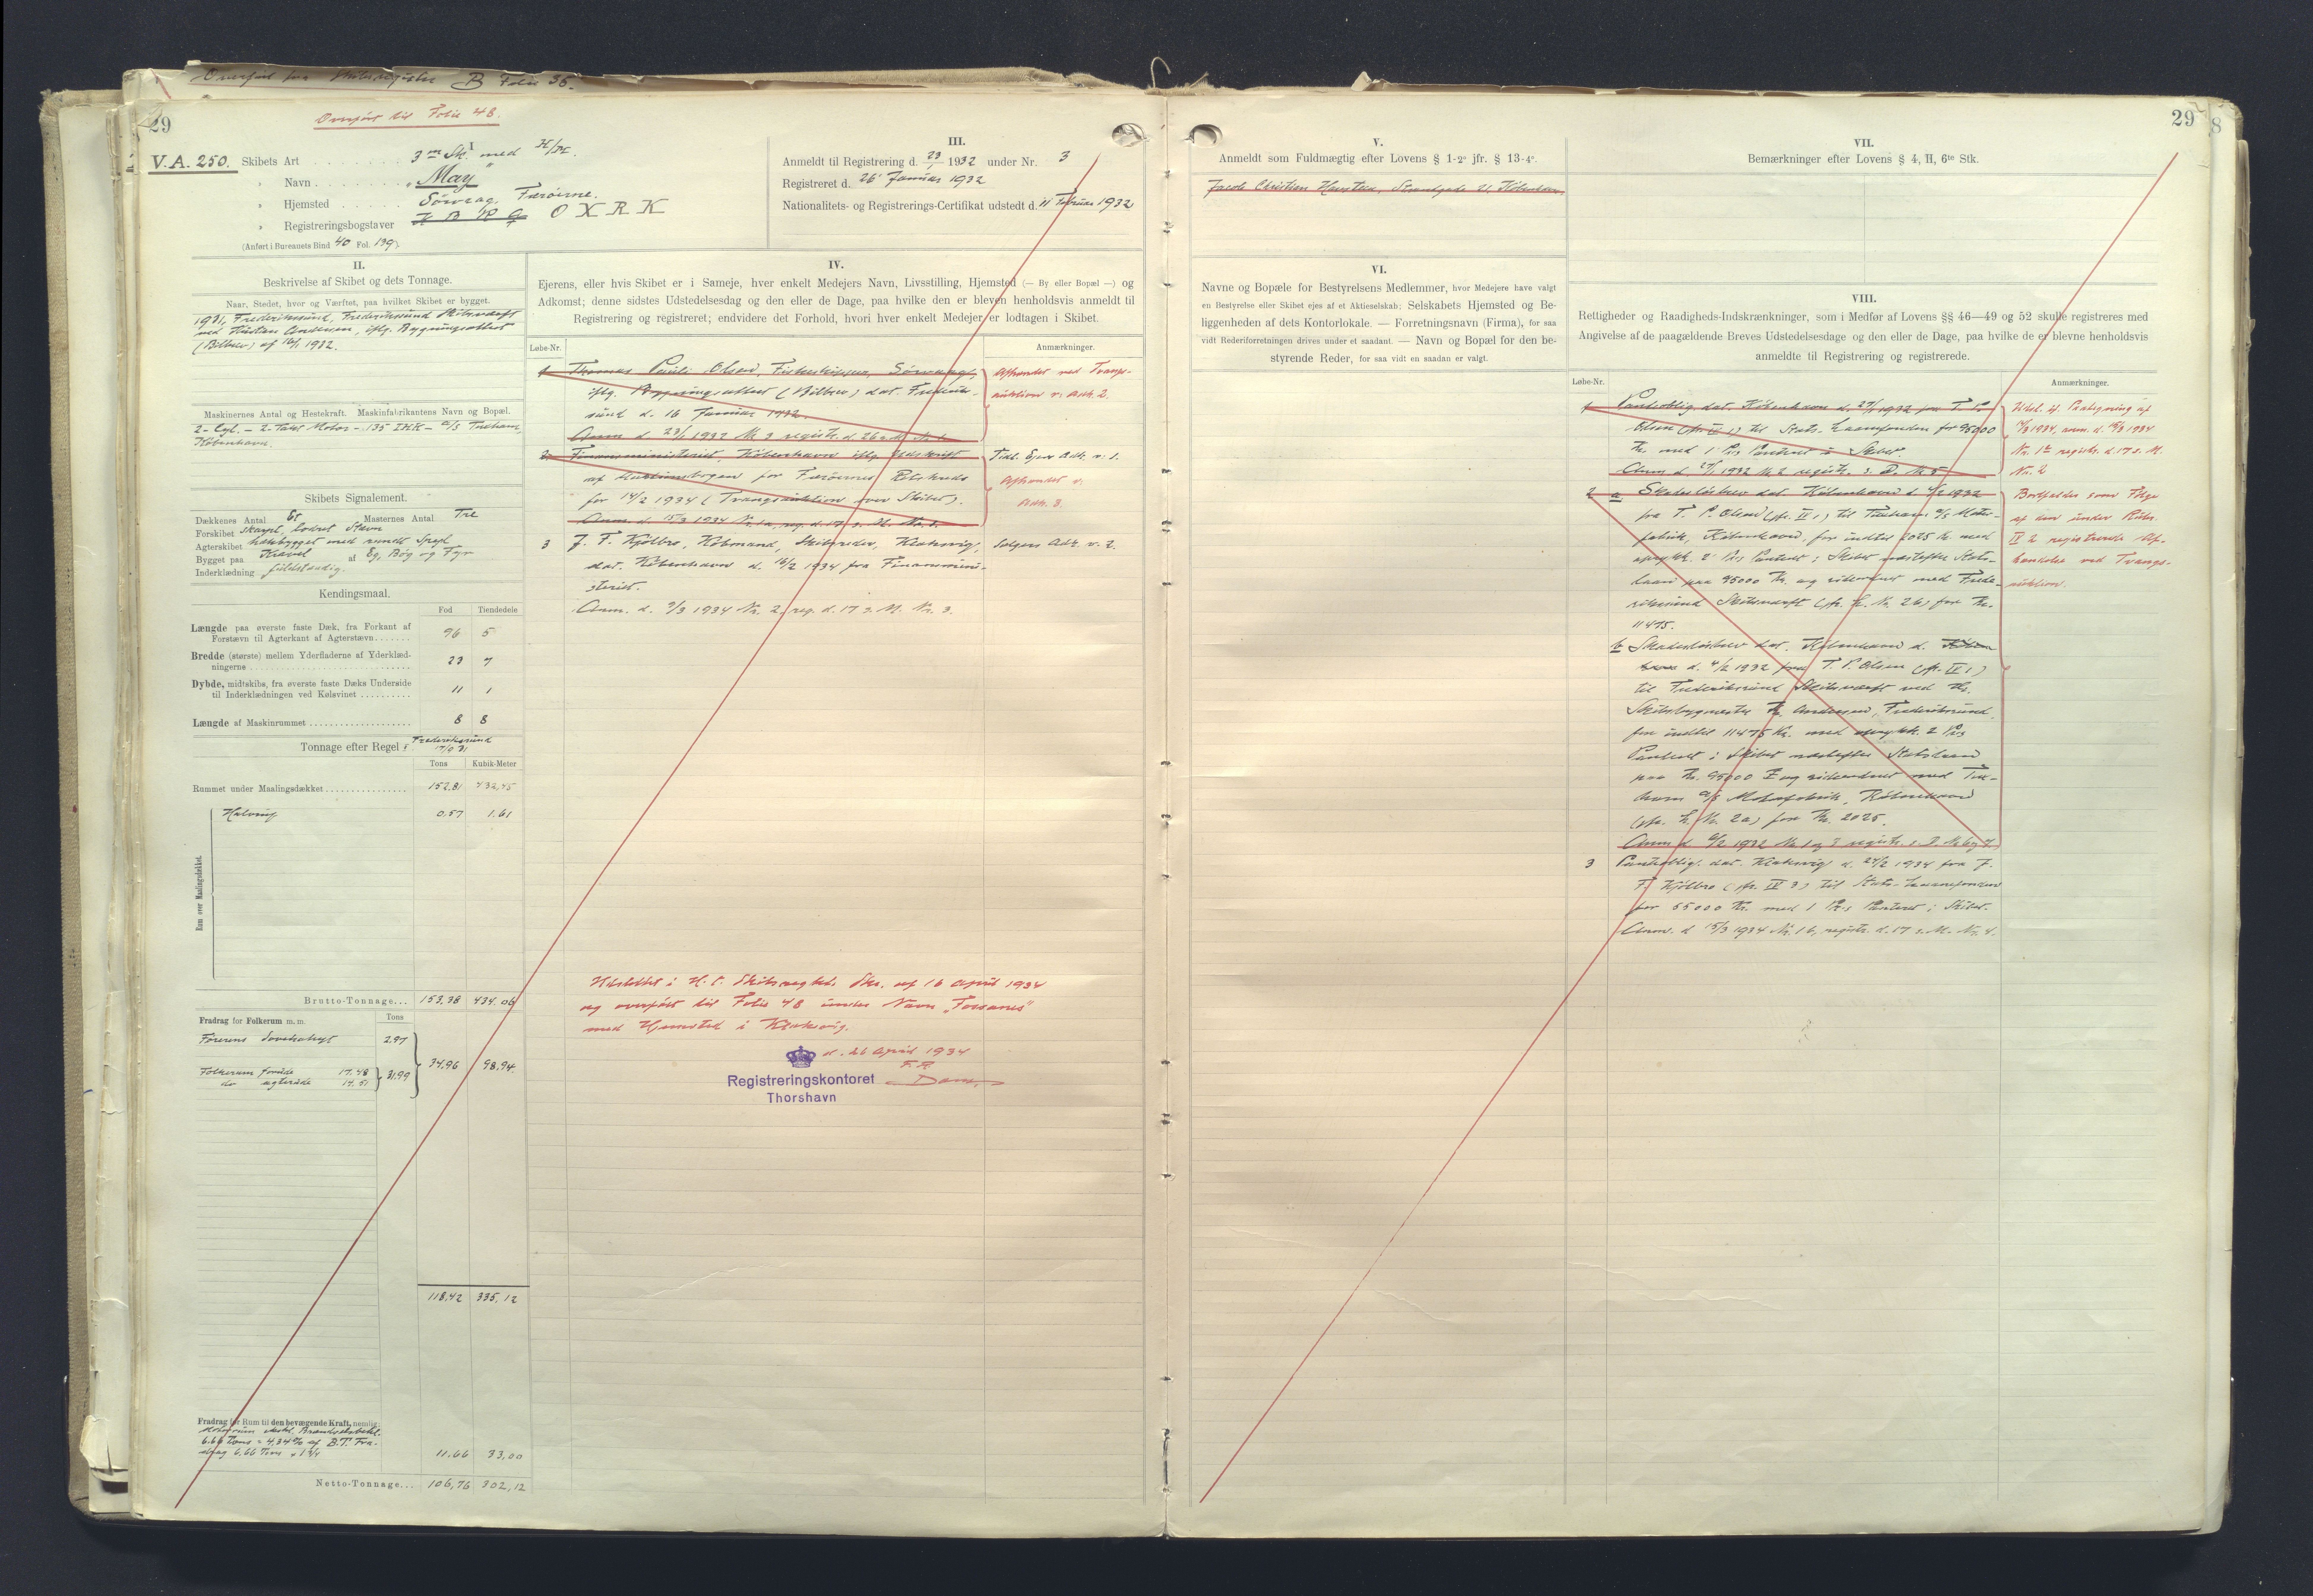 Overført fra Skibsregister B Folio 36.
29
Overført til Folio 48.
V.A. 250.
I
Skibets Art . . . . . . . . 3 m Sk. med H/M.
" Navn . . . . . . . „May"
" Hjemsted . . . . . Sørvaag, Færøerne.
" Registreringsbogstaver O X R K
(Anført i Bureauets Bind 40 Fol. 139).
III.
Anmeldt til Registrering d. 23/1 1932 under Nr. 3
Registreret d. 26' Januar 1932
Nationalitets- og Registrerings-Certifikat udstedt d. 11 Februar 1932
II.
Beskrivelse af Skibet og dets Tonnage.
Naar, Stedet, hvor og Værftet, paa hvilket Skibet er bygget.
1931, Frederikssund, Frederikssund Skibsværft
ved Kristian Andersen, iflg. Bygningsattest
(Bilbrev) af 16/1 1932.
Maskinernes Antal og Hestekraft. Maskinfabrikantens Navn og Bopæl.
2-Cyl. – 2-Takt Motor – 135 IHK – A/S Tuxham,
København.
Skibets Signalement.
Dækkenes Antal Et Masternes Antal Tre
Forskibet skarpt, lodret Stævn
Agterskibet hækbygget med rundt Spejl
Bygget paa Kravel af Eg, Bøg og Fyr
Inderklædning fuldstændig.
Kendingsmaal.
Fod Tiendedele
Længde paa øverste faste Dæk, fra Forkant af
Forstævn til Agterkant af Agterstævn . . . . . . . 96 5
Bredde (største) mellem Yderfladerne af Yderklæd-
ningerne . . . . . . . . 23 7
Dybde, midtskibs, fra øverste faste Dæks Underside
til Inderklædningen ved Kølsvinet . . . . . . . . . . 11 1
Længde af Maskinrummet . . . . . . . . 8 8
Tonnage efter Regel I Frederikssund
Tons Kubik-Meter
Rummet under Maalingsdækket . . . . . . . . 152,81 432,45
Rum over Maalingsdækket.
Halvrup 0.57 1.61
Brutto-Tonnage... 153,38 434.06
Fradrag for Folkerum m. m. Tons
Førerens Lovbehft 2.97
Folkerum forude 17.48
do agterude 14.51
31.99
34,96 98.94.
118,42 335,12
Fradrag for Rum til den bevægende Kraft, nemlig:
6.66 Tons = 4,34 % af B.T. Fra-
drag 6,66 Tons + 1 3/4
11.66 33,00
Netto-Tonnage... 106,76 302,12
IV.
Ejerens, eller hvis Skibet er i Sameje, hver enkelt Medejers Navn, Livsstilling, Hjemsted (— By eller Bopæl —) og
Adkomst; denne sidstes Udstedelsesdag og den eller de Dage, paa hvilke den er bleven henholdsvis anmeldt til
Registrering og registreret; endvidere det Forhold, hvori hver enkelt Medejer er lodtagen i Skibet.
Løbe-Nr. Anmærkninger.
1 Thomas Pauli Olsen, Fiskeskipper, Sørvaag,
iflg. Bygningsattest (Bilbrev) dat. Frederiks-
sund d. 16 Januar 1932.
Anm. d. 23/1 1932 Nr. 3 registr. d. 26 s. M. Nr. 1.
Afhændet ved Tvangs-
auktion v: Adk. 2.
2 Finansministeriet, København iflg. Udskrift
af Auktionsbogen for Færøernes Retskreds
for 14/2 1934 (Tvangsauktion over Skibet).
Anm. d. 15/3 1934 Nr. 1a, reg. d. 17 s. M. Nr. 1.
Tidl. Ejers Adk. v: 1.
Afhændet v:
Adk. 3.
3 J. F. Kjølbro, Købmand, Skibsreder, Klaksvig,
dat. København d. 16/2 1934 fra Finansmini-
steriet.
Anm. d. 9/3 1934 Nr. 2, reg. d. 17 s. M. Nr. 3.
Sælgers Adk. v: 2.
Udslettet i H. t. Skibsregtets Skr. af 16 April 1934
og overført til Folio 48 under Navn „Tovanes"
med Hjemsted i Klaksvig.
d. 26 April 1934
F. R.
Registreringskontoret
Thorshavn
V.
Anmeldt som Fuldmægtig efter Lovens § 1-2° jfr. § 13-4°.
Jacob Christian Haustein, Strandgade 21, København.
VI.
Navne og Bopæle for Bestyrelsens Medlemmer, hvor Medejere have valgt
en Bestyrelse eller Skibet ejes af et Aktieselskab; Selskabets Hjemsted og Be-
liggenheden af dets Kontorlokale. — Forretningsnavn (Firma), for saa
vidt Rederiforretningen drives under et saadant. — Navn og Bopæl for den be-
styrende Reder, for saa vidt en saadan er valgt.
29
8
VII.
Bemærkninger efter Lovens § 4, H, 6te Stk.
VIII.
Rettigheder og Raadigheds-Indskrænkninger, som i Medfør af Lovens §§ 46—49 og 52 skulle registreres med
Angivelse af de paagældende Breves Udstedelsesdage og den eller de Dage, paa hvilke de er blevne henholdsvis
anmeldte til Registrering og registrerede.
Løbe-Nr. Anmærkninger.
1 Pantoblig. dat. København d. 27/1 1932 fra T. P.
Olsen (jfr. IV 1) til Stats-Laanefonden for 95000
Kr. med 1 Pr.s Panteret i Skibet.
Anm. d. 27/1 1932 Nr. 2 registr. s. D. Nr. 5
Udsl. if. Paategning af
14/3 1934, anm. d. 15/3 1934
Nr. 1c registr. d. 17 s. M.
Nr. 2
2 a Skadesløsbrev dat. København d. 4/2 1932
fra T. P. Olsen (jfr. IV 1) til Tuxham A/S Motor-
fabrik, København, for indtil 2025 Kr. med
oprykk. 2' Pr.s Panteret i Skibet næstefter Stats-
laan paa 95000 Kr. og sideordnet med Frede-
rikssund Skibsværft (jfr. L. Nr. 2b) for Kr.
11475.
Bortfalder som Følge
af den under Rubr.
IV 2 registrerede Af-
hændelse ved Tvangs-
auktion.
b Skadesløsbrev dat. København d.
d. 4/2 1932 fra T. P. Olsen (jfr. IV 1)
til Frederikssund Skibsværft ved Hr.
Skibsbygmester K. Andersen, Frederikssund,
for indtil 11475 Kr. med oprykk. 2 Pr.s
Panteret i Skibet næstefter Statslaan
paa Kr. 95000 og sideordnet med Tux-
ham A/S Motorfabrik, København
(jfr. L. Nr. 2a) for Kr. 2025.
Anm. d. 6/2 1932 Nr. 1 og 2 registr. s. D. Nr. 6 og 7.
3 Pantoblig. dat. Klaksvig d. 24/2 1934 fra J.
F. Kjølbro (jfr. IV 3) til Stats-Laanefonden
for 55000 Kr. med 1 Pr.s Panteret i Skibet.
Anm. d. 15/3 1934 Nr. 1b, registr. d. 17 s. M. Nr. 4.